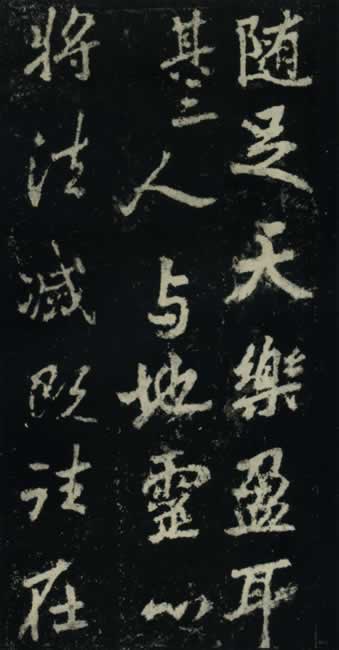 随足天樂盈耳
其三人与地靈心
將法滅既註在